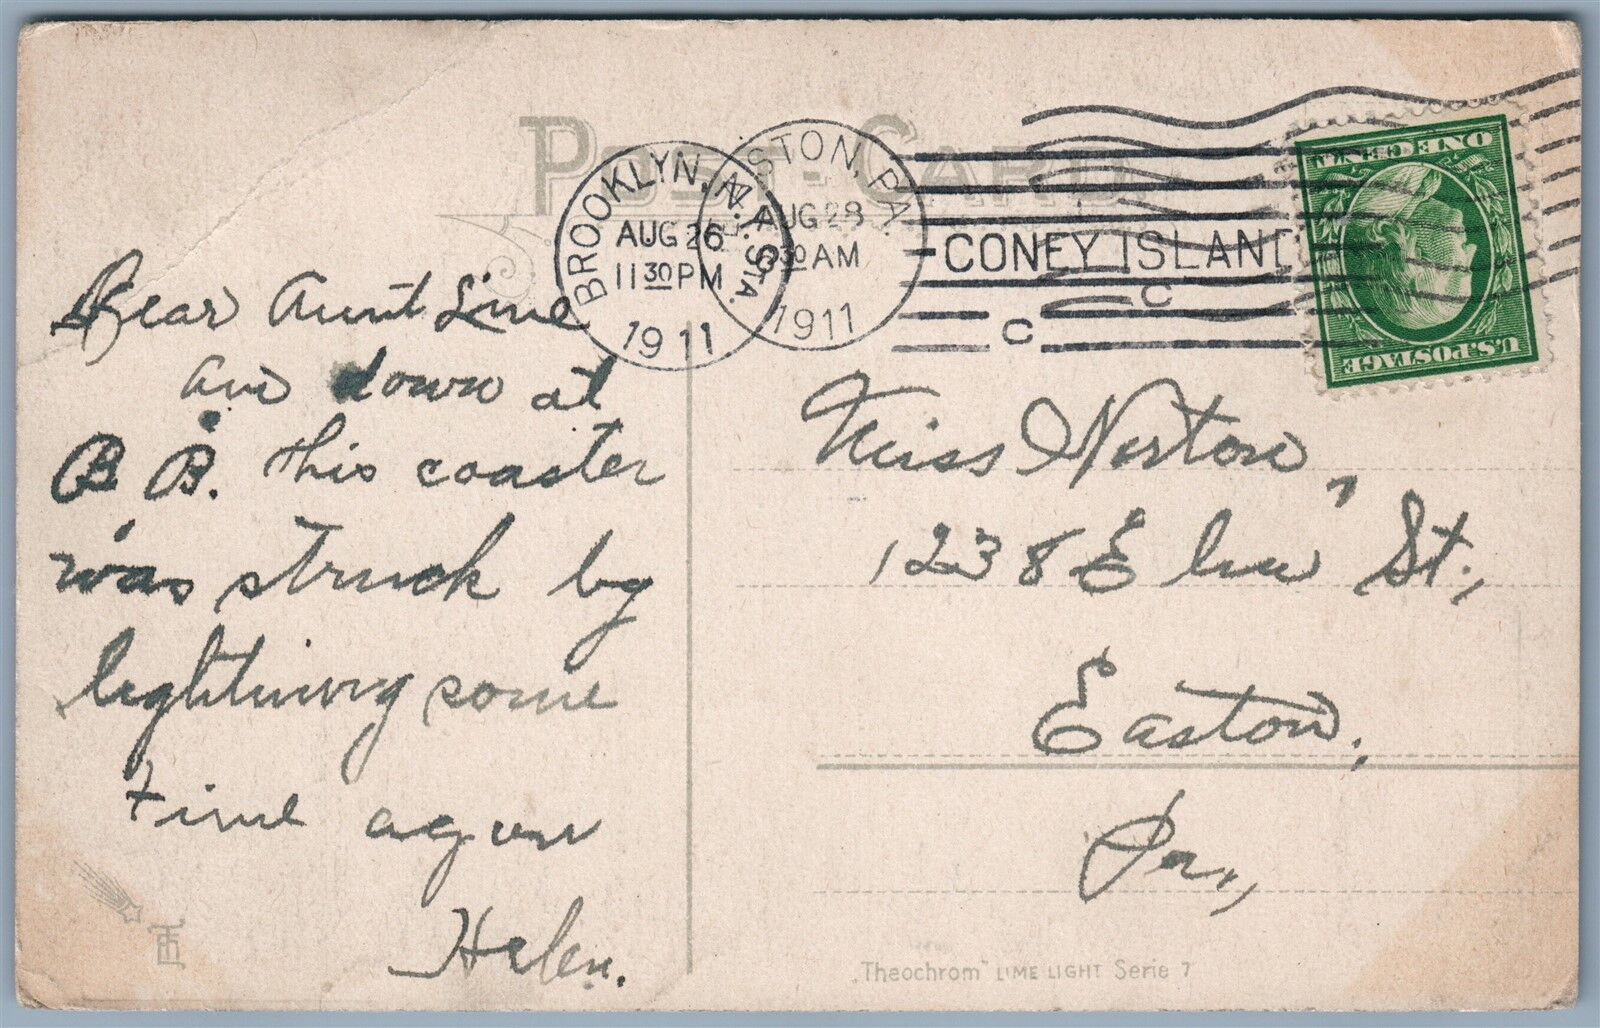 POST CARD
BROOKLYN, N.Y.
STA.
AUG 26
11 30 PM
1911
EASTON, PA.
AUG 28
30 AM
1911
CONEY ISLAND
C
C
ONE CENT
U.S. POSTAGE
Dear Aunt Line
am down at
B B. this coaster
was struck by
lightning some
time agow
Helen.
Miss Norton,
1238 Elm St.,
Easton,
Pa.,
„Theochrom" LIME LIGHT Serie 7